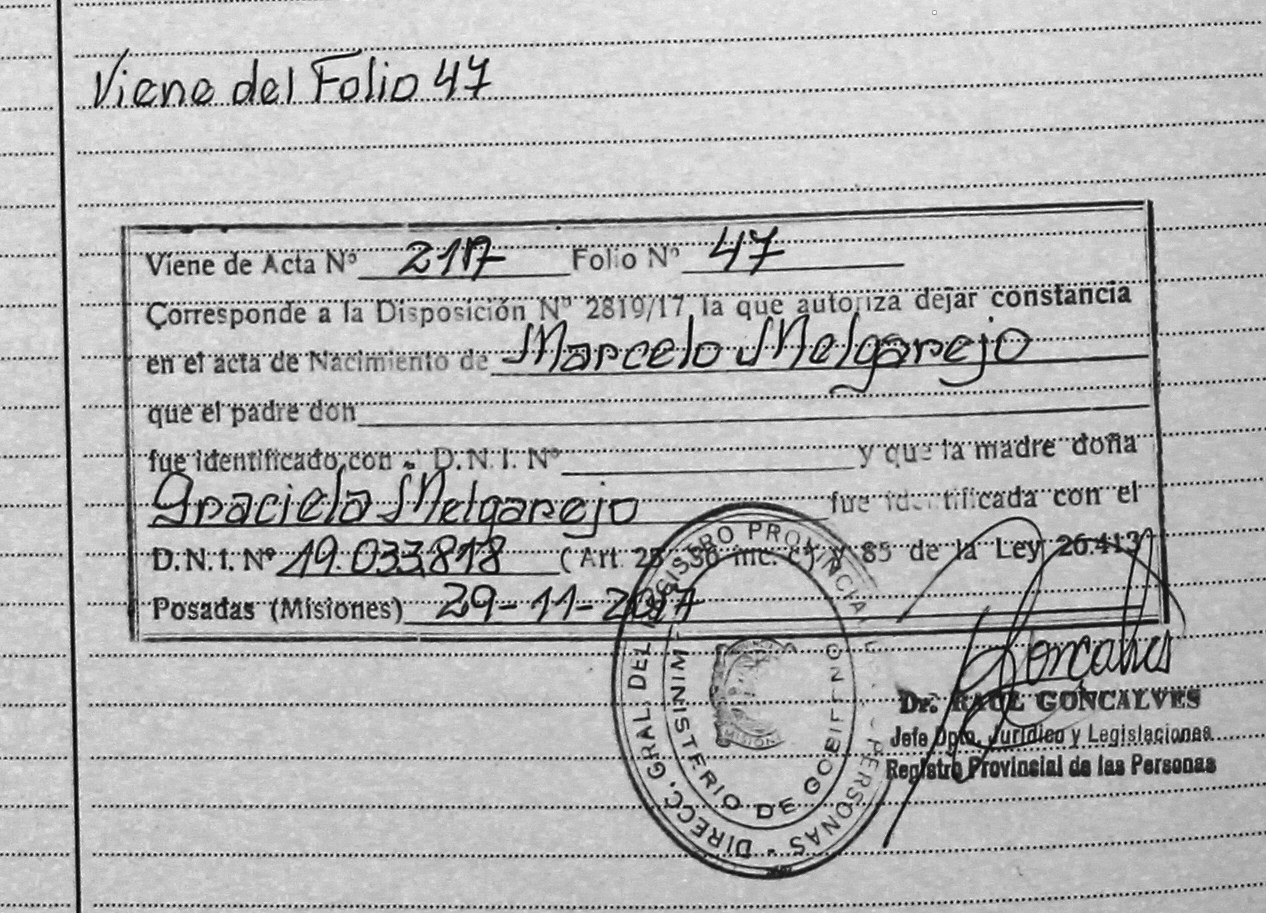 Viene del Folio 47
Viene de Acta Nº 217 Folio Nº 47
Corresponde a la Disposición Nº 2819/17 la que autoriza dejar constancia
en el acta de Nacimiento de Marcelo Melgarejo
que el padre don
fue identificado con D.N.I. Nº y que la madre doña
Graciela Melgarejo fue identificada con el
D.N.I. Nº 19.033.818 (Art. 25 36 inc. c) y 85 de la Ley 26.413
Posadas (Misiones) 29-11-2017
DIRECC. GRAL. DEL REGISTRO PROVINCIAL PERSONAS
MINISTERIO DE GOBIERNO
MISIONES
Goncalves
Dr. RAUL GONCALVES
Jefe Dpto. Jurídico y Legislaciones
Registro Provincial de las Personas